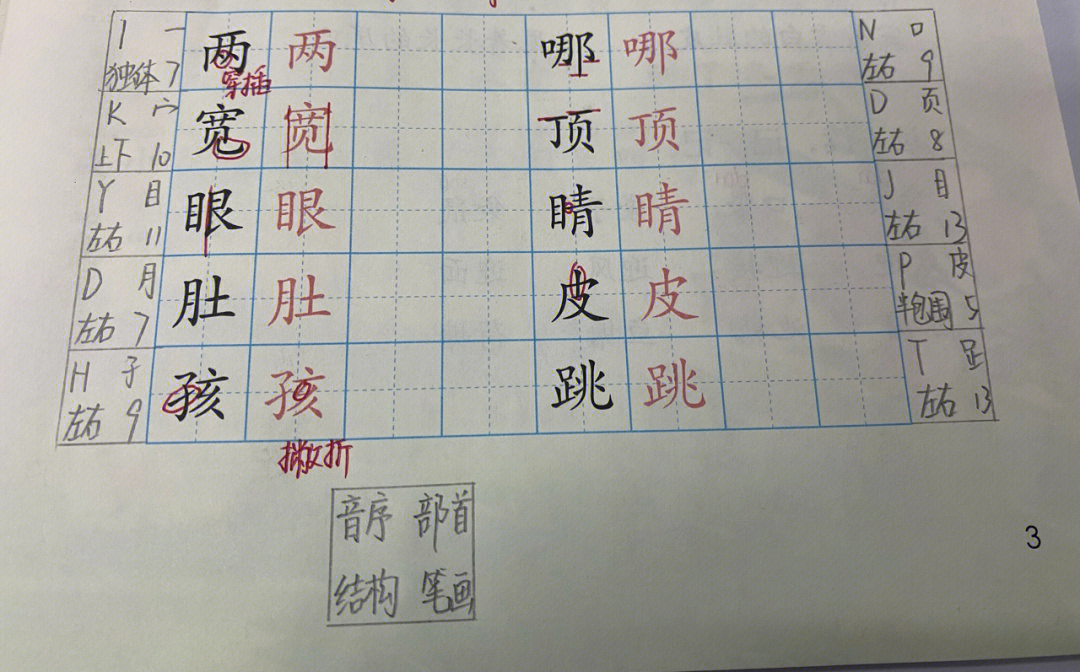 l 一 两 两 哪 哪 N 口
独体 7 穿插 左右 9
K 宀 宽 宽 顶 顶 D 页
上下 10 左右 8
Y 目 眼 眼 睛 睛 J 目
左右 11 左右 13
D 月 肚 肚 皮 皮 P 皮
左右 7 半包围 5
H 子 孩 孩 跳 跳 T 足
左右 9 左右 13
撇折
音序 部首
结构 笔画
3